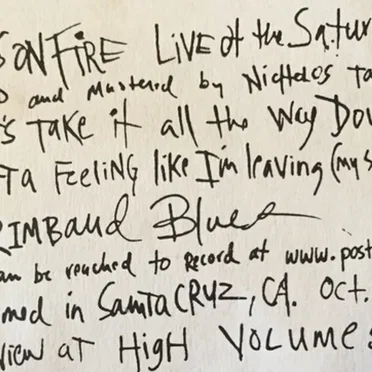 SONFIRE LIVE at the Satur
D and Mastered by Nicholas Ta
's TAKE it all the Way Dow
TA FEELiNG like I'm leaving (my s
RIMBAUD Blues
an be reached to Record at www.post
med in SANTA CRUZ, CA. Oct.
VIEW AT HIGH VOLUME